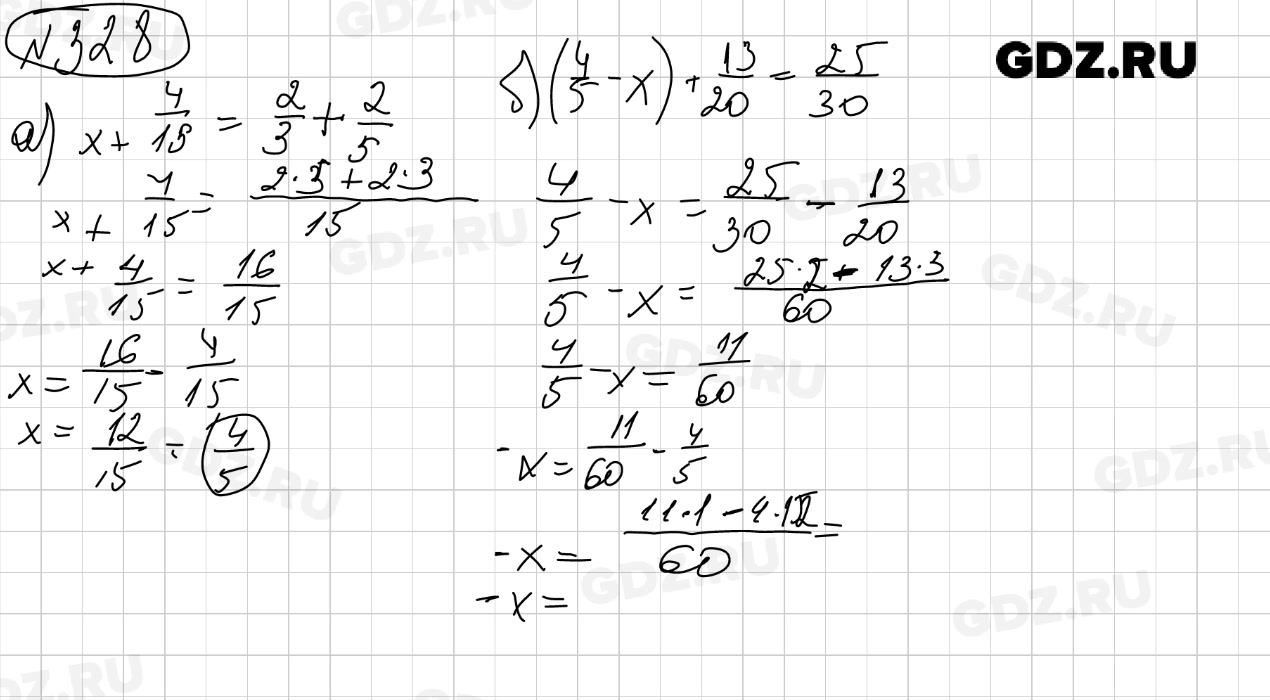 N328
GDZ.RU
а) x + 4/15 = 2/3 + 2/5
x + 4/15 = (2·5 + 2·3)/15
x + 4/15 = 16/15
x = 16/15 - 4/15
x = 12/15 = 4/5
б) (4/5 - x) + 13/20 = 25/30
4/5 - x = 25/30 - 13/20
4/5 - x = (25·2 - 13·3)/60
4/5 - x = 11/60
-x = 11/60 - 4/5
-x = (11·1 - 4·12)/60 =
-x =